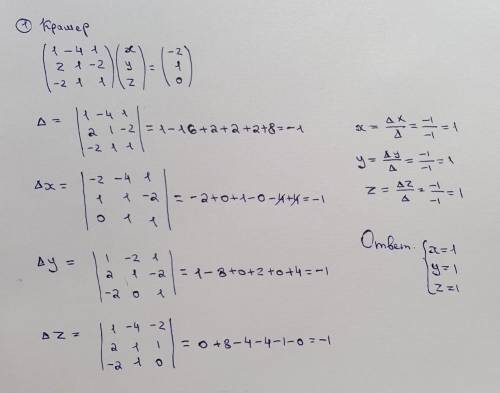 ① Крамер
( 1 -4 1 ; 2 1 -2 ; -2 1 1 ) ( x ; y ; z ) = ( -2 ; 1 ; 0 )
Δ = | 1 -4 1 ; 2 1 -2 ; -2 1 1 | = 1-16+2+2+2+8=-1
Δx = | -2 -4 1 ; 1 1 -2 ; 0 1 1 | = -2+0+1-0-4+4=-1
Δy = | 1 -2 1 ; 2 1 -2 ; -2 0 1 | = 1-8+0+2+0+4=-1
Δz = | 1 -4 -2 ; 2 1 1 ; -2 1 0 | = 0+8-4-4-1-0=-1
x = Δx/Δ = -1/-1 = 1
y = Δy/Δ = -1/-1 = 1
z = Δz/Δ = -1/-1 = 1
Ответ. { x=1
y=1
z=1